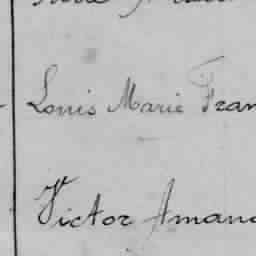 Louis Marie Fran
Victor Amand